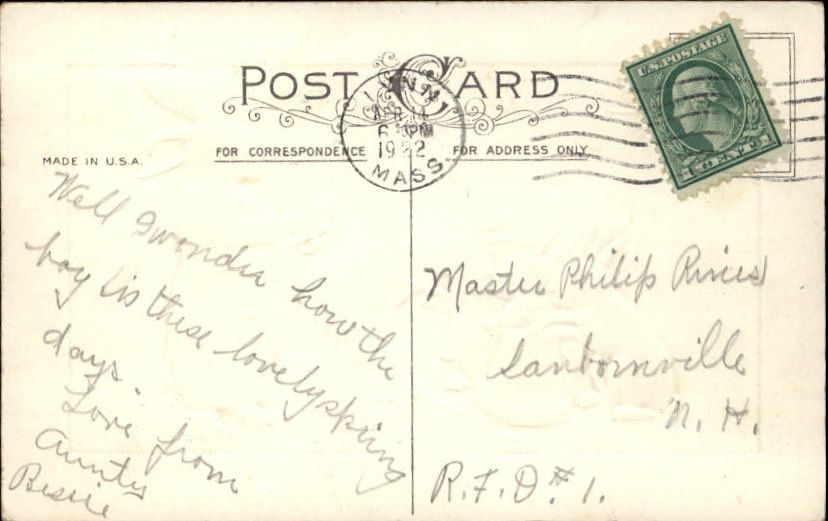 POST CARD
MADE IN U.S.A.
FOR CORRESPONDENCE
FOR ADDRESS ONLY
LYNN
APR 14
6 PM
1922
MASS.
U.S. POSTAGE
Well I wonder how the
boy is these lovely spring
days.
Love from
Aunty
Bessie
Master Philip Rines
Sanbornville
N. H.
R.F.D. # 1.